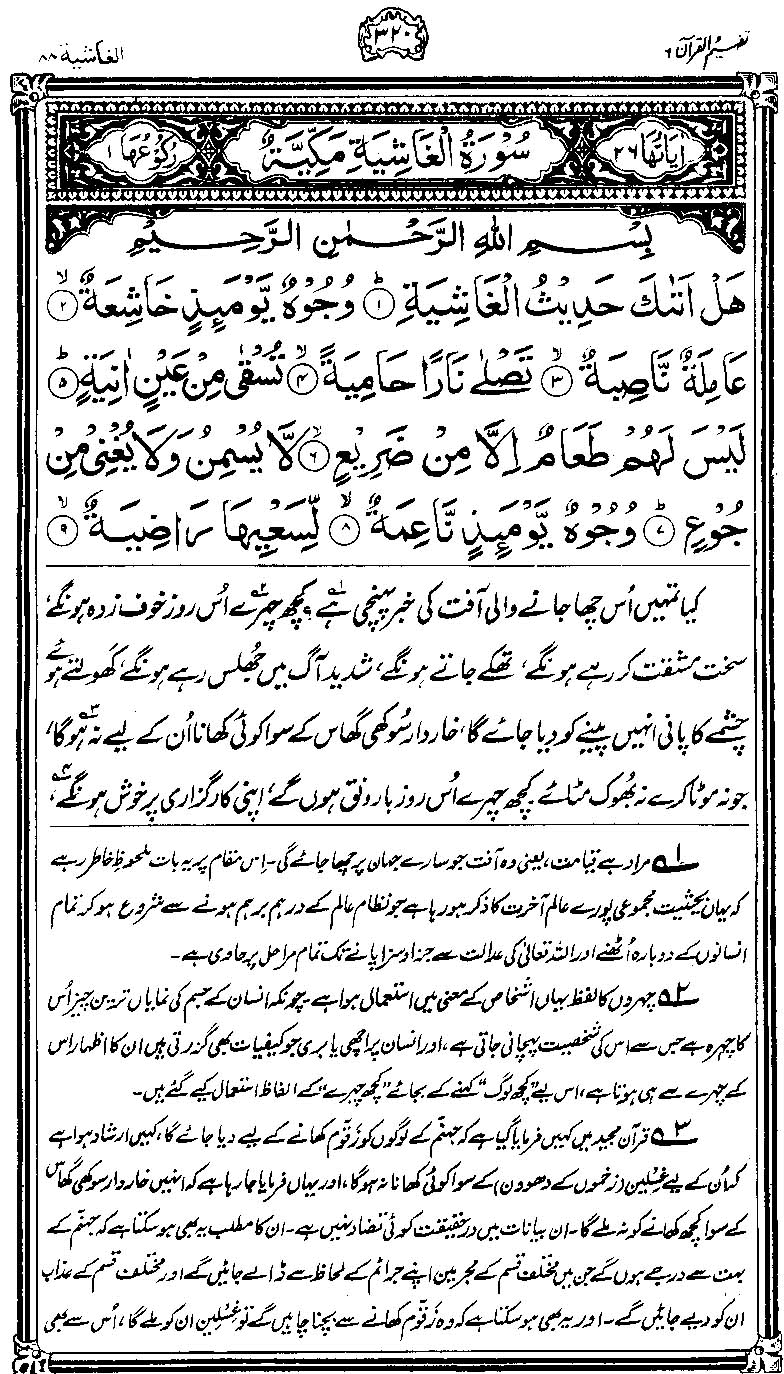 تفہیم القرآن ۶
۳۲۰
الغاشیۃ ۸۸
اٰیَاتُهَا ۲۶
سُوْرَةُ الْغَاشِيَةِ مَكِّيَّةٌ
رُكُوْعُهَا ۱
بِسْمِ اللهِ الرَّحْمٰنِ الرَّحِيْمِ
هَلْ اَتٰىكَ حَدِيْثُ الْغَاشِيَةِ ؕ۝۱ وُجُوْهٌ يَّوْمَىِٕذٍ خَاشِعَةٌ ۙ۝۲
عَامِلَةٌ نَّاصِبَةٌ ۙ۝۳ تَصْلٰى نَارًا حَامِيَةً ۙ۝۴ تُسْقٰى مِنْ عَيْنٍ اٰنِيَةٍ ؕ۝۵
لَيْسَ لَهُمْ طَعَامٌ اِلَّا مِنْ ضَرِيْعٍ ۙ۝۶ لَّا يُسْمِنُ وَلَا يُغْنِيْ مِنْ
جُوْعٍ ؕ۝۷ وُجُوْهٌ يَّوْمَىِٕذٍ نَّاعِمَةٌ ۙ۝۸ لِّسَعْيِهَا رَاضِيَةٌ ۙ۝۹
کیا تمہیں اُس چھا جانے والی آفت کی خبر پہنچی ہے؟۱ کچھ چہرے۲ اُس روز خوف زدہ ہونگے،
سخت مشقت کر رہے ہونگے، تھکے جاتے ہونگے، شدید آگ میں جھُلس رہے ہونگے، کھَولتے ہوئے
چشمے کا پانی انہیں پینے کو دیا جائے گا، خاردار سُوکھی گھاس کے سوا کوئی کھانا اُن کے لیے نہ ہوگا۳،
جو نہ موٹا کرے نہ بھُوک مٹائے۔ کچھ چہرے اُس روز با رونق ہوں گے، اپنی کارگزاری پر خوش ہونگے۴،
۱؎ مراد ہے قیامت، یعنی وہ آفت جو سارے جہان پر چھا جائے گی۔ اِس مقام پر یہ بات ملحوظِ خاطر رہے
کہ یہاں بحیثیت مجموعی پورے عالمِ آخرت کا ذکر ہو رہا ہے جو نظامِ عالم کے درہم برہم ہونے سے شروع ہو کر تمام
انسانوں کے دوبارہ اُٹھنے اور اللہ تعالیٰ کی عدالت سے جزا و سزا پانے تک تمام مراحل پر حاوی ہے۔
۲؎ چہروں کا لفظ یہاں اشخاص کے معنی میں استعمال ہوا ہے۔ چونکہ انسان کے جسم کی نمایاں ترین چیز اُس
کا چہرہ ہے جس سے اس کی شخصیت پہچانی جاتی ہے، اور انسان پر اچھی یا بری جو کیفیات بھی گزرتی ہیں ان کا اظہار اس
کے چہرے سے ہی ہوتا ہے، اس لیے "کچھ لوگ" کہنے کے بجائے "کچھ چہرے" کے الفاظ استعمال کیے گئے ہیں۔
۳؎ قرآن مجید میں کہیں فرمایا گیا ہے کہ جہنم کے لوگوں کو زقّوم کھانے کے لیے دیا جائے گا، کہیں ارشاد ہوا ہے
کہ اُن کے لیے غِسْلِین (زخموں کے دھوون) کے سوا کوئی کھانا نہ ہوگا، اور یہاں فرمایا جا رہا ہے کہ انہیں خاردار سوکھی گھاس
کے سوا کچھ کھانے کو نہ ملے گا۔ ان بیانات میں درحقیقت کوئی تضاد نہیں ہے۔ ان کا مطلب یہ بھی ہو سکتا ہے کہ جہنم کے
بہت سے درجے ہوں گے جن میں مختلف قسم کے مجرمین اپنے جرائم کے لحاظ سے ڈالے جائیں گے اور مختلف قسم کے عذاب
ان کو دیے جائیں گے۔ اور یہ بھی ہو سکتا ہے کہ وہ زقّوم کھانے سے بچنا چاہیں گے تو غِسْلِین ان کو ملے گا، اُس سے بھی